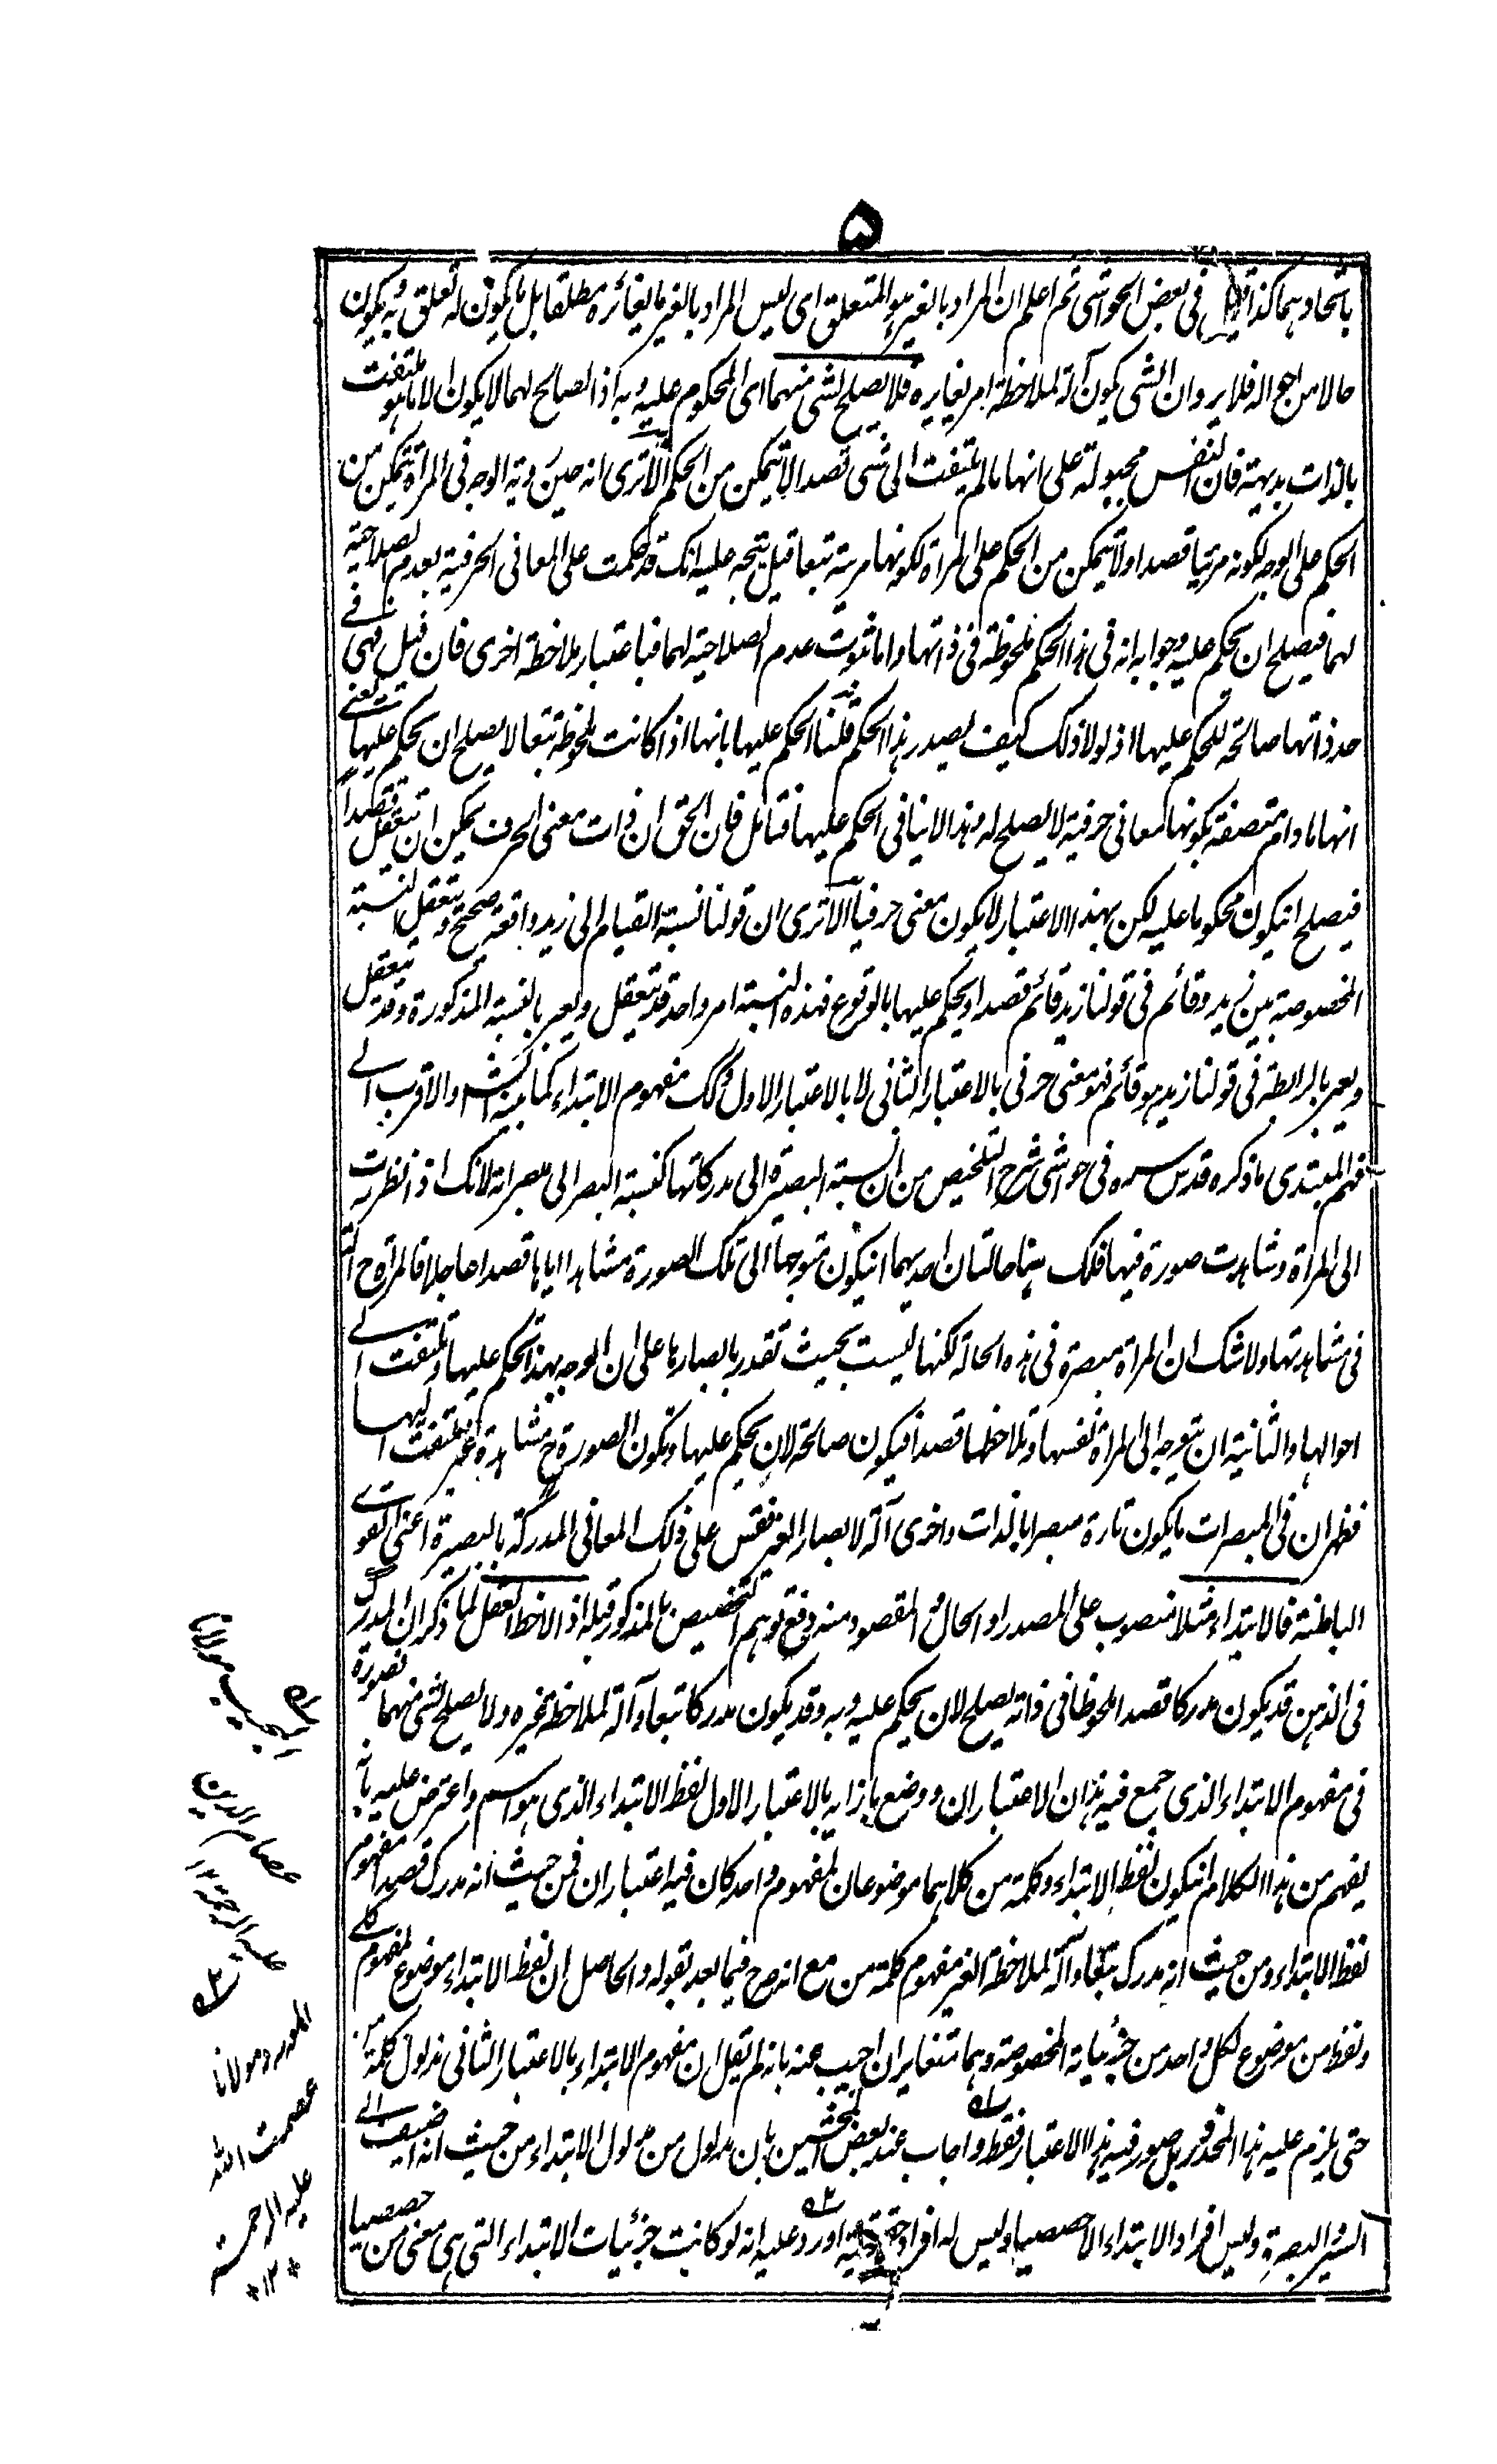 ۵
باتحادهما كذا قيل في بعض الحواشي ثم اعلم ان المراد بالغير هو المتعلق اي ليس المراد بالغير ما يغائره مطلقا بل ما يكون له تعلق به ويكون
حالا من احواله فلا يرد ان الشي يكون آلة لملاحظة امر يغايره فلا يصلح لشي منهما اي المحكوم عليه وبه اذ الصالح لهما لا يكون الا ما هو ملتفت
بالذات بديهة فان النفس مجبولة على انها ما لم يلتفت الى شي قصدا لا يتمكن من الحكم الا ترى انه حين روية الوجه في المرآة يتمكن من
الحكم على الوجه لكونه مرئيا قصدا ولا يتمكن من الحكم على المرآة لكونها مرئية تبعا قيل يتجه عليه انك قد حكمت على المعاني الحرفية بعدم الصلاحية
لهما فيصلح ان يحكم عليه وجوابه انه في هذا الحكم ملحوظة في ذاتها واما ثبوت عدم الصلاحية لهما فباعتبار ملاحظة اخرى فان قيل فهي في
حد ذاتها صالحة للحكم عليها اذ لولا ذلك كيف يصدر هذا الحكم قلنا الحكم عليها بانها اذا كانت ملحوظة تبعا لا يصلح ان يحكم عليها يعني
انها ما دام متصفة بكونها معاني حرفية لا يصلح له وهذا لا ينافي الحكم عليها فتامل فان الحق ان ذات معنى الحرف يمكن ان يتعقل قصدا
فيصلح ان يكون محكوما عليه لكن بهذا الاعتبار لا يكون معنى حرفيا الا ترى ان قولنا نسبة القيام الى زيد واقعة صحيح ويتعقل النسبة
المخصوصة بين زيد وقائم في قولنا زيد قائم قصدا ويحكم عليها بالوقوع فهذه النسبة امر واحد قد يتعقل ويعبر بالنسبة المذكورة وقد يتعقل
ويعبر بالرابطة في قولنا زيد هو قائم فهو معنى حرفي بالاعتبار الثاني لا بالاعتبار الاول وكذلك مفهوم الابتداء كما بينه الش والاقرب الى
فهم المبتدي ما ذكره قدس سره في حواشي شرح التلخيص من ان نسبة البصيرة الى مدركاتها كنسبة البصر الى مبصراته لانك اذا نظرت
الى المرآة وشاهدت صورة فيها فلك هنا حالتان احديهما ان يكون متوجها الى تلك الصورة مشاهدا اياها قصدا جاعلا فالمرآة ح آلة
في مشاهدتها ولا شك ان المرآة مبصرة في هذه الحالة لكنها ليست بحيث تقدر بابصارها على ان الوجه بهذا تحكم عليها وتلتفت الى
احوالها والثانية ان يتوجه الى المرآة نفسها وتلاحظها قصدا فيكون صالحة لان يحكم عليها ويكون الصورة ح مشاهدة غير ملتفت اليها
فظهر ان في المبصرات ما يكون تارة مبصرا بالذات واخرى آلة لابصار الغير فقس على ذلك المعاني المدركة بالبصيرة اعني القوى
الباطنة فالابتداء مثلا منصوب على المصدر او الحال والمقصود منه دفع توهم التخصيص بالمذكور قبله اذا لاحظ العقل لما ذكر ان المدرك
في الذهن قد يكون مدركا قصدا ملحوظا في ذاته يصلح لان يحكم عليه وبه وقد يكون مدركا تبعا وآلة لملاحظة غيره ولا يصلح لشي منهما تصوره
في مفهوم الابتداء الذي جمع فيه هذان الاعتباران ووضع بازايه بالاعتبار الاول لفظ الابتداء الذي هو اسم واعترض عليه بانه
يفهم من هذا الكلام ان يكون لفظ الابتداء وكلمة من كلاهما موضوعان لمفهوم واحد كان فيه اعتباران فمن حيث انه مدرك قصدا مفهوم
لفظ الابتداء ومن حيث انه مدرك تبعا وآلة لملاحظة الغير مفهوم كلمة من مع انه صرح فيما بعد بقوله والحاصل ان لفظ الابتداء موضوع لمفهوم كلي
ولفظ من موضوع لكل واحد من جزئياته المخصوصة وهما متغايران اجيب عنه بانه لم يقل ان مفهوم الابتداء بالاعتبار الثاني مدلول كلمة من
حتى يلزم عليه هذا المحذور بل صور فيه هذا الاعتبار فقط واجاب عنه بعض المحشين بان مدلول من مدلول الابتداء من حيث انه اضيف الى
السير والبصرة وليس افراد الابتداء الا حصصيا وليس له افراد حقيقية اورد عليه انه لو كانت جزئيات الابتداء التي هي معنى من حصصيا
المجيب مولانا
عصام الدين
عليه الرحمة ۱۲
المورد مولانا
عصمت الله
عليه الرحمة
۱۲